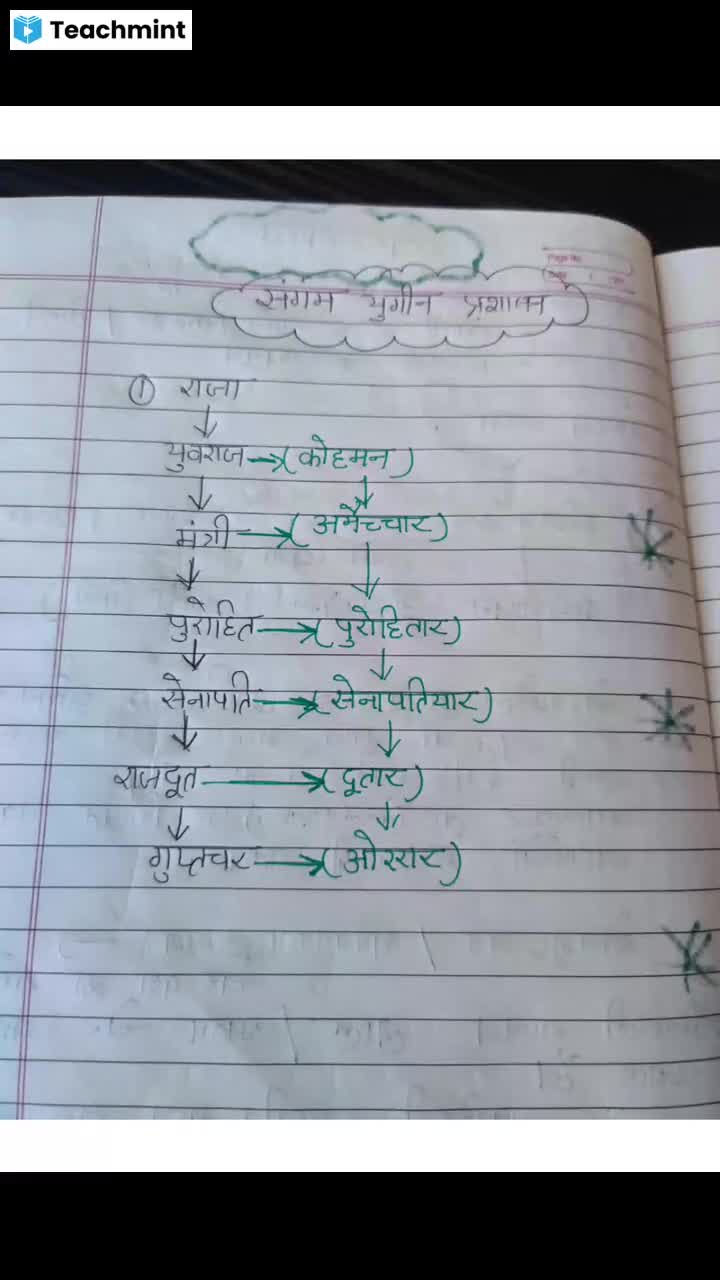 Teachmint
संगम युगीन प्रशासन
① राजा
युवराज → (कोहमन)
मंत्री → (अमैच्चार)
पुरोहित → (पुरोहितार)
सेनापति → (सेनापतियार)
राजदूत → (दूतार)
गुप्तचर → (ओररार)